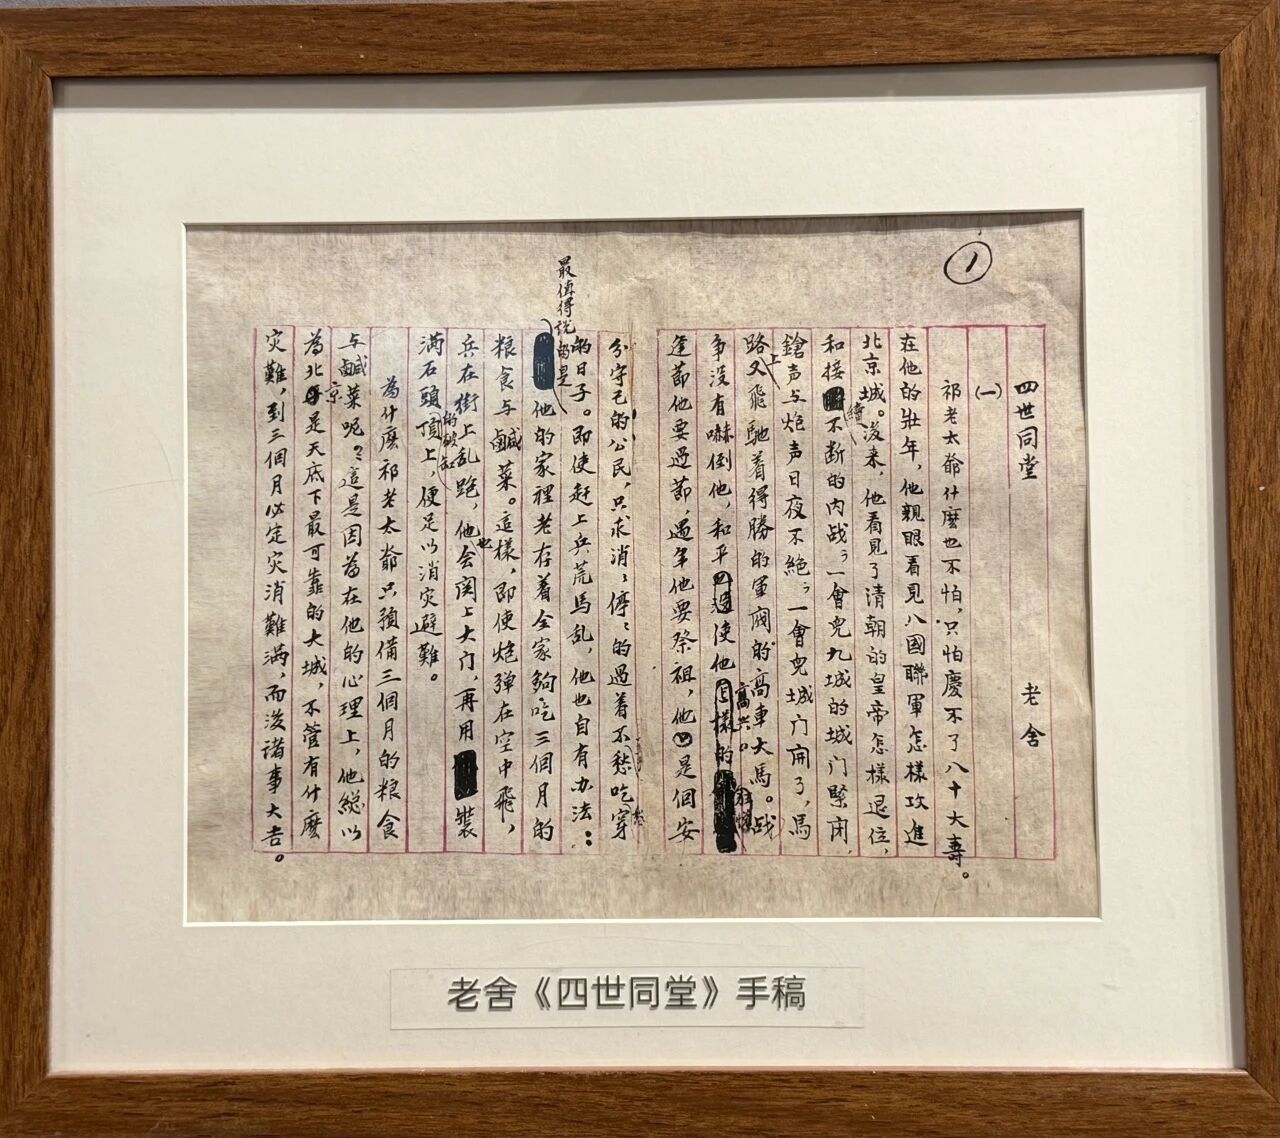 1
四世同堂 老舍
(一)
祁老太爺什麼也不怕,只怕慶不了八十大壽。
在他的壯年,他親眼看見八國聯軍怎樣攻進
北京城。後來,他看見了清朝的皇帝怎樣退位,
和接續不断的内战;一會兒九城的城门緊闭,
鎗声与炮声日夜不絕;一會兒城门開了,馬
路上又飛馳着得勝的軍閥的高車大馬。战
争没有嚇倒他,和平使他高兴。
逢節他要過節,過年他要祭祖,他是個安
分守己的公民,只求消消停停的過着不愁吃穿
的日子。即使赶上兵荒馬乱,他也自有办法:
最值得説的是他的家裡老存着全家夠吃三個月的
粮食与鹹菜。這樣,即使炮弹在空中飛,
兵在街上乱跑,他也会関上大门,再用装
满石頭的破缸顶上,便足以消灾避難。
為什麽祁老太爺只預備三個月的粮食
与鹹菜呢?這是因為在他的心理上,他総以
為北京是天底下最可靠的大城,不管有什麽
灾難,到三個月必定灾消難满,而後諸事大吉。
老舍《四世同堂》手稿